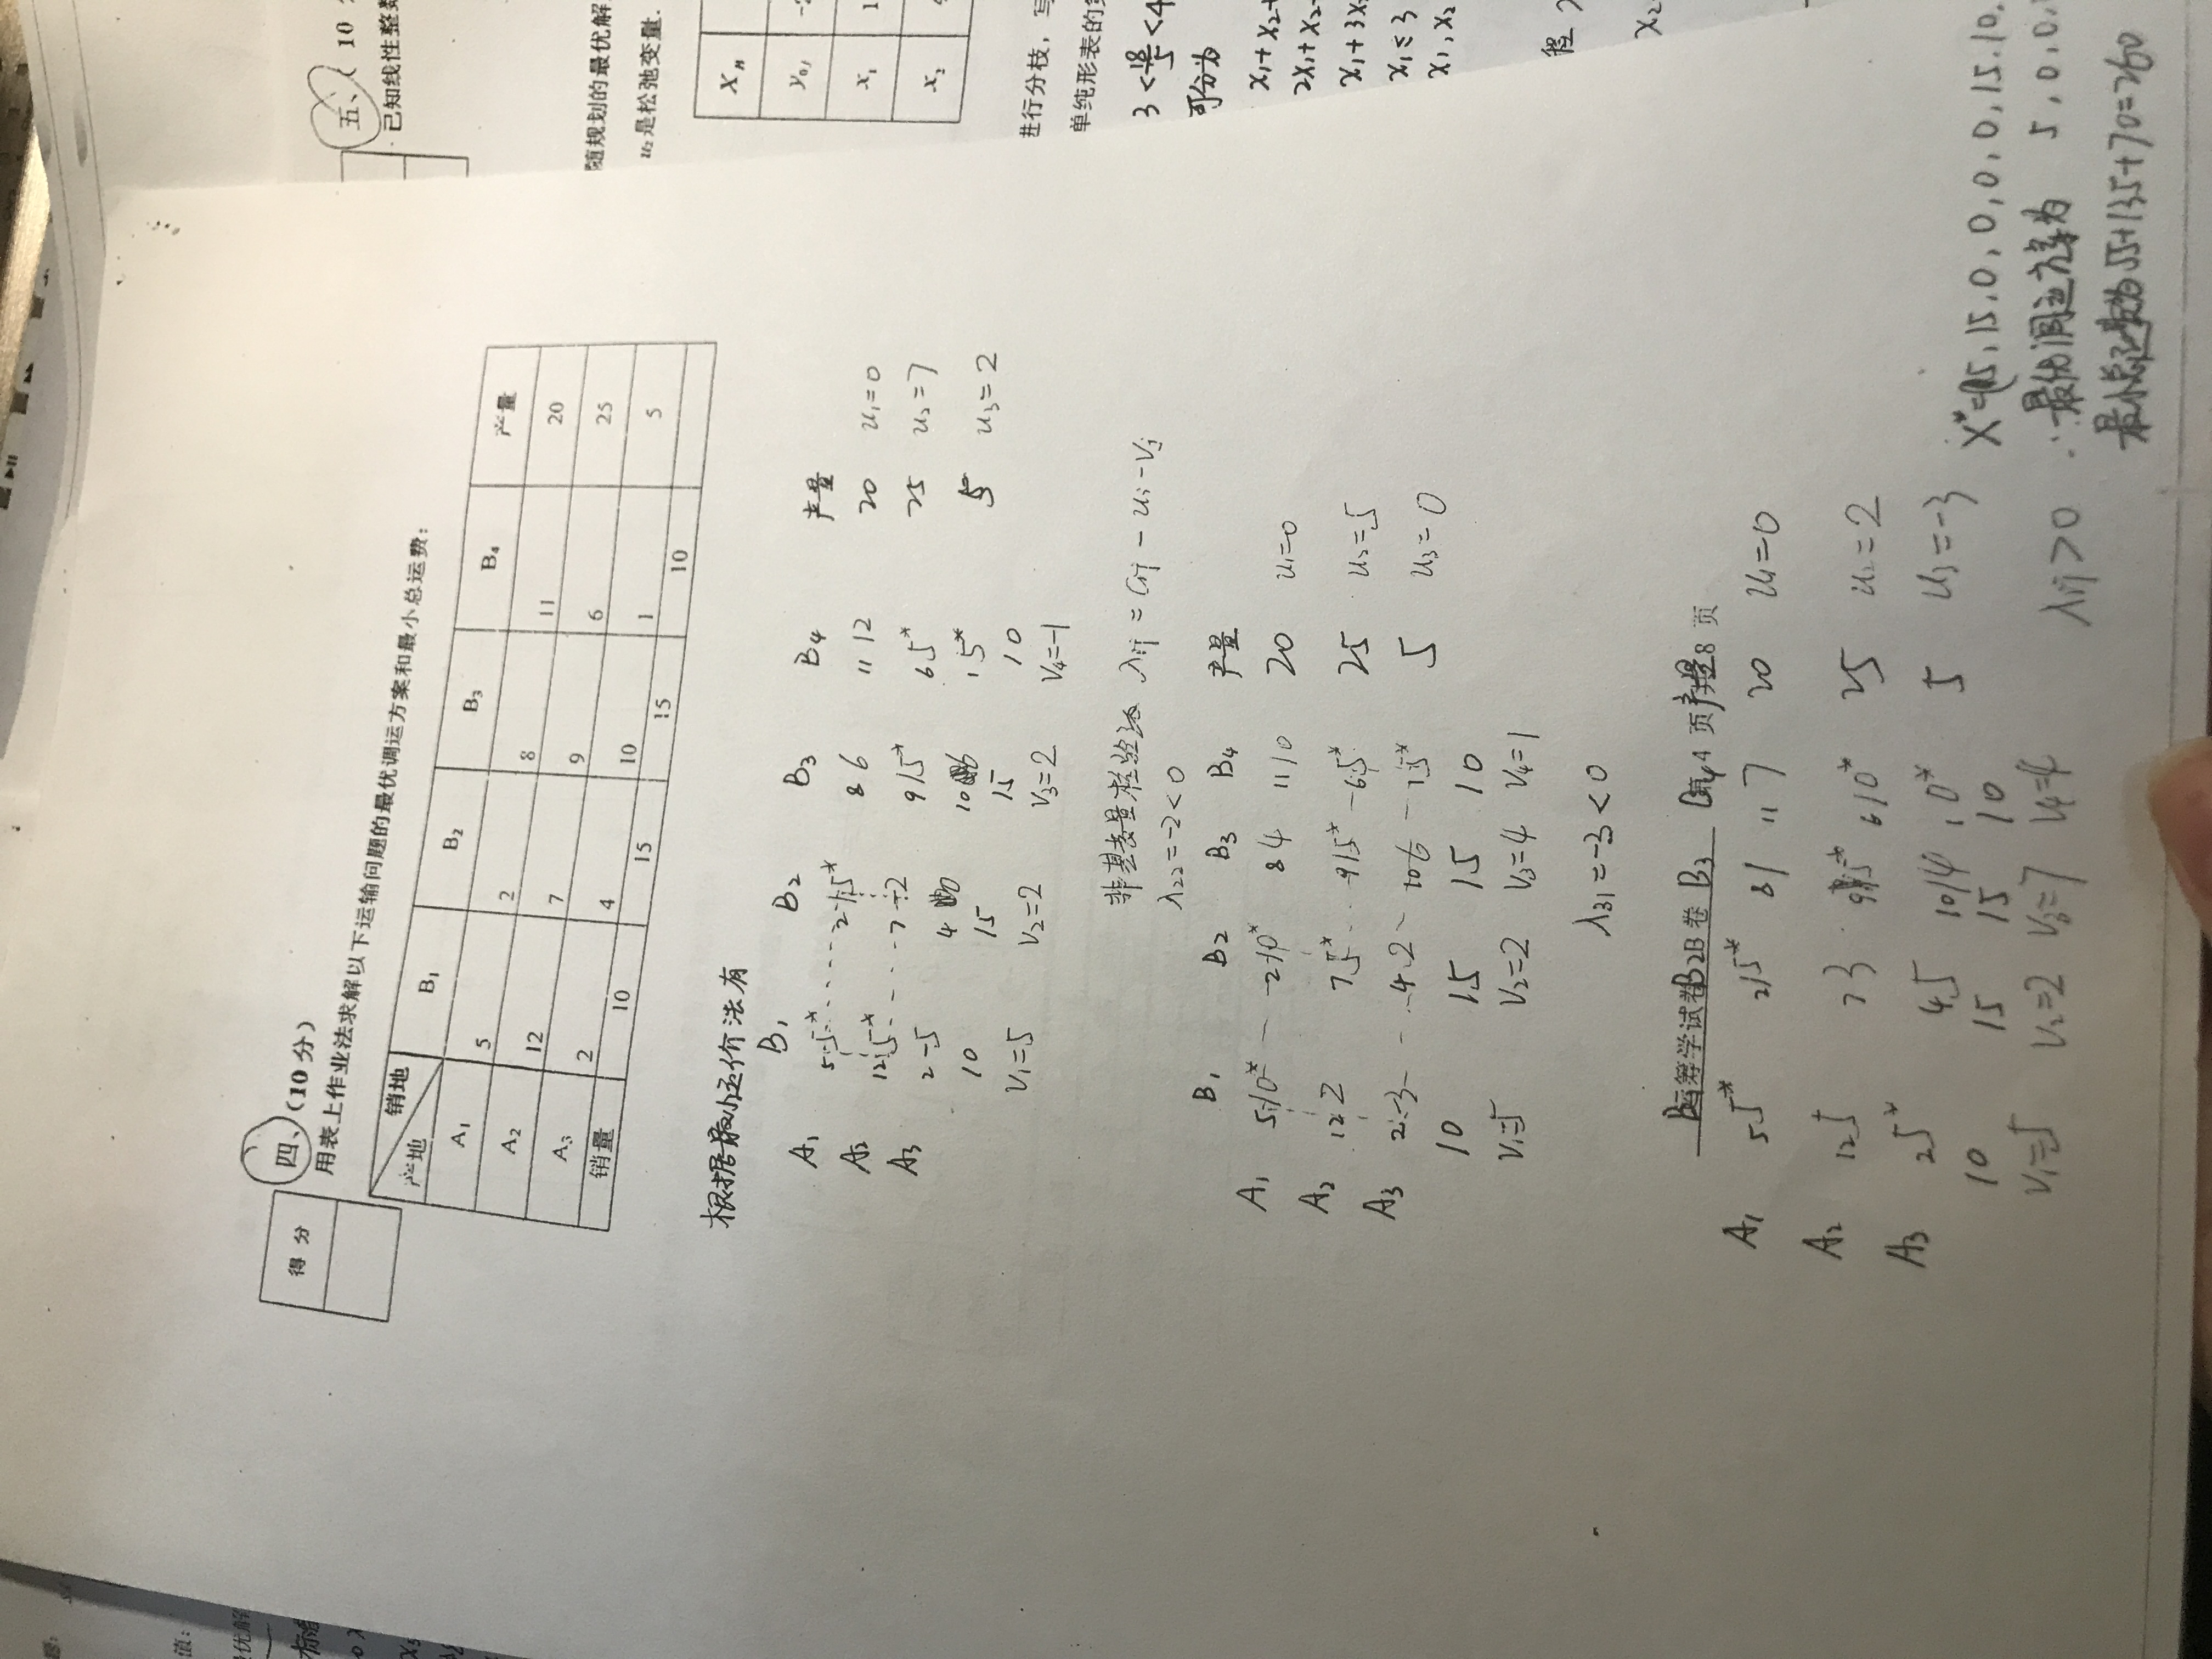 题:
值:
最优解
得 分
四、(10 分)
用表上作业法求解以下运输问题的最优调运方案和最小总运费:
销地
产地 B₁ B₂ B₃ B₄ 产量
A₁ 5 2 8 11 20
A₂ 12 7 9 6 25
A₃ 2 4 10 1 5
销量 10 15 15 10
根据最小运价法有
B₁ B₂ B₃ B₄ 产量
A₁ 5 5* 2 15* 8 6 11 12 20 u₁=0
A₂ 12 5* 7 -2 9 15* 6 5* 25 u₂=7
A₃ 2 -5 4 0 10 6 1 5* 5 u₃=2
10 15 15 10
V₁=5 V₂=2 V₃=2 V₄=-1
非基变量检验 λij = Cij - ui - Vj
λ₂₂=-2<0
B₁ B₂ B₃ B₄ 产量
A₁ 5 10* 2 10* 8 4 11 10 20 u₁=0
A₂ 12 2 7 5* 9 15* 6 5* 25 u₂=5
A₃ 2 -3 4 2 10 6 1 5* 5 u₃=0
10 15 15 10
V₁=5 V₂=2 V₃=4 V₄=1
λ₃₁=-3<0
运筹学试卷 B 卷 第 4 页 共 8 页
B₁ B₂ B₃ B₄ 产量
A₁ 5 5* 2 15* 8 1 11 7 20 u₁=0
A₂ 12 5 7 3 9 15* 6 10* 25 u₂=2
A₃ 2 5* 4 5 10 14 1 0* 5 u₃=-3
10 15 15 10
V₁=5 V₂=2 V₃=7 V₄=4
λij>0
X*=(5,15,0,0,0,0,15,10,
5,0,0,
∴最优调运方案为
最小总运费为55+135+70=260
五、( 10
已知线性整数
随规划的最优解
u₂是松弛变量.
X_B
y₀ⱼ -2
x₁ 1
x₂
进行分枝,写
单纯形表的
3<18/5<4
可分为
x₁+x₂+
2x₁+x₂
x₁+3x
x₁≤3
x₁,x₂
程
x₂